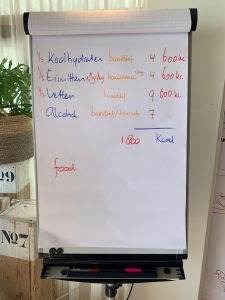 1/3 Koolhydraten brandstof 4 600kc
1/3 Eiwitten 4 600kc
1/3 Vetten brandstof 9 600kc
Alcohol brandstof/ 7
1800 Kcal
food
№9
№7